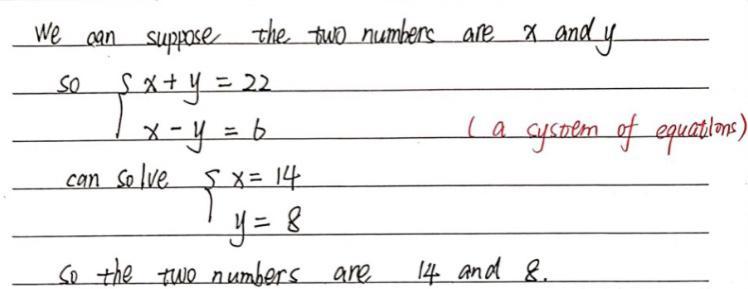 We can suppose the two numbers are x and y
so { x + y = 22
x - y = 6 (a system of equations)
can solve { x = 14
y = 8
so the two numbers are 14 and 8.